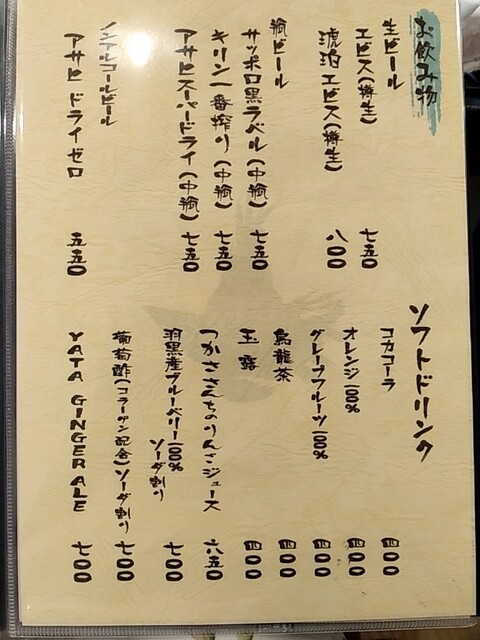 お飲み物
生ビール
ヱビス(樽生) 七五〇
琥珀ヱビス(樽生) 八〇〇
瓶ビール
サッポロ黒ラベル(中瓶) 七五〇
キリン一番搾り(中瓶) 七五〇
アサヒスーパードライ(中瓶) 七五〇
ノンアルコールビール
アサヒ ドライゼロ 五五〇
ソフトドリンク
コカコーラ 四〇〇
オレンジ100% 四〇〇
グレープフルーツ100% 四〇〇
烏龍茶 四〇〇
玉露 四〇〇
つかささんちのりんごジュース 六五〇
羽黒産ブルーベリー100%
ソーダ割り 七〇〇
葡萄酢(コラーゲン配合)ソーダ割り 七〇〇
YATA GINGER ALE 七〇〇